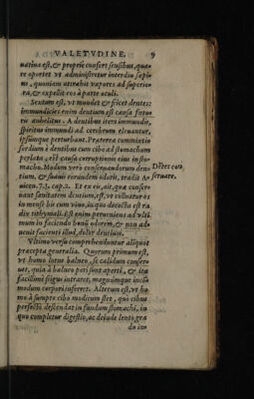 VALETVDINE. 9
natiua est, & propriè confert sensibus, quare
oportet vt administretur interdiu sæpius,
quoniam attrahit vapores ad superiora,
& expellit eos à parte oculi.
Sextum est, vt mundet & fricet dentes:
immundicies enim dentium est causa fœtoris
anhelitus. A dentibus item immundis,
spiritus immundi ad cerebrum eleuantur,
ipsumque perturbant. Præterea commixtio
sordium à dentibus cum cibo ad stomachum
perlata, erit causa corruptionis eius in stomacho.
Modum verò conseruandorum dentium,
& suauis reddendi odoris, tradit Auicen.
7.3. cap. 2. Et ex eis, ait, quæ conseruant
sanitatem dentium, est, vt colluatur os
in mense bis cum vino, in quo decocta est radix
tithymali. Est enim perueniens ad vltimum
in faciendo bonū odorem, & non aduenit
facienti illud, dolor dentium.
Vltimo versu comprehenduntur aliquot
præcepta generalia. Quorum primum est,
vt homo lotus balneo, se calidum conseruet,
quia à balneo pori sunt aperti, & ita
facillimè frigus intraret, magnúmque incōmodum
corpori inferret. Alterum est, vt homo
à sumpto cibo modicum stet, quò cibus
perfectò descendat in fundum stomachi, in
quo completur digestio, ac deinde lento gra-
du in-
Dētes cōseruare.